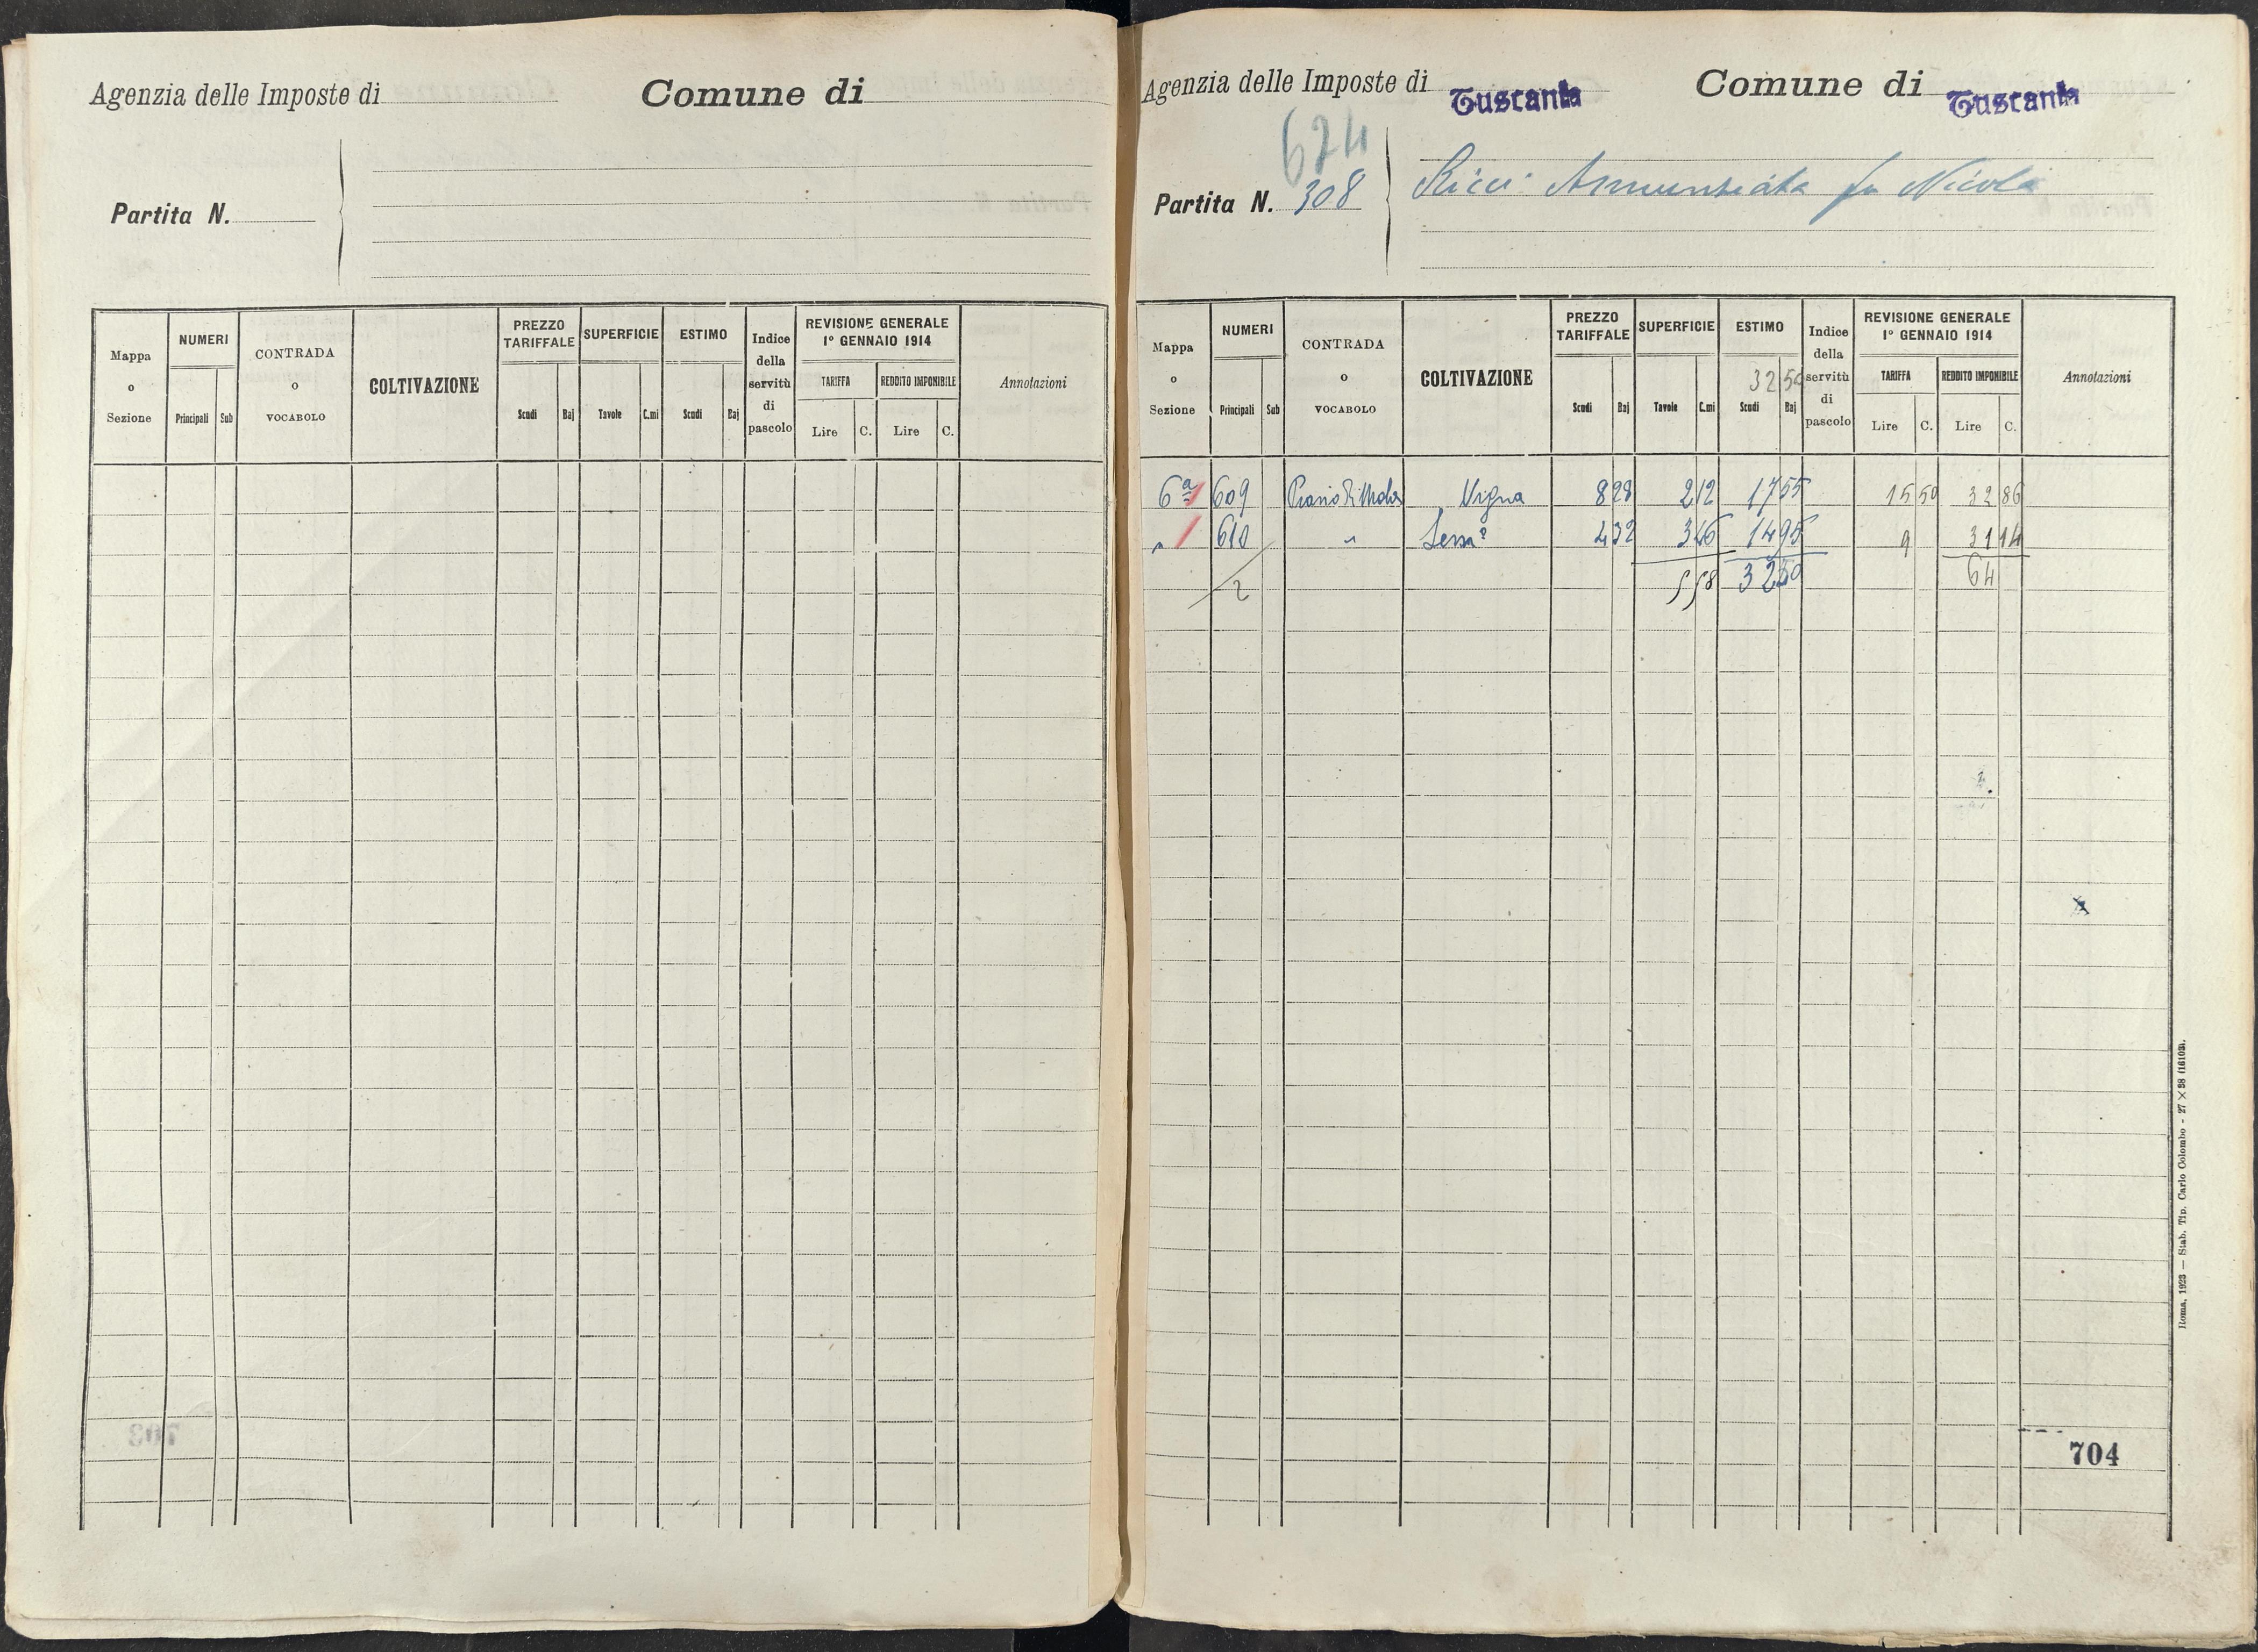 Agenzia delle Imposte di Comune di
Partita N.
Mappa o Sezione NUMERI Principali Sub CONTRADA o VOCABOLO COLTIVAZIONE PREZZO TARIFFALE Scudi Baj SUPERFICIE Tavole C.mi ESTIMO Scudi Baj Indice della servitù di pascolo REVISIONE GENERALE 1° GENNAIO 1914 TARIFFA Lire C. REDDITO IMPONIBILE Lire C. Annotazioni
703
Agenzia delle Imposte di Tuscania Comune di Tuscania
674
Partita N. 308 Ricci Annunziata fu Nicola
Mappa o Sezione NUMERI Principali Sub CONTRADA o VOCABOLO COLTIVAZIONE PREZZO TARIFFALE Scudi Baj SUPERFICIE Tavole C.mi ESTIMO 32 50 Scudi Baj Indice della servitù di pascolo REVISIONE GENERALE 1° GENNAIO 1914 TARIFFA Lire C. REDDITO IMPONIBILE Lire C. Annotazioni
6ª 609 Piano di Mola Vigna 8 28 2 12 17 55 15 50 32 86
" 610 " 4 32 3 46 14 95 9 31 14
2 5 58 32 50 64
704
Roma, 1923 — Stab. Tip. Carlo Colombo - 27 × 38 (16103).